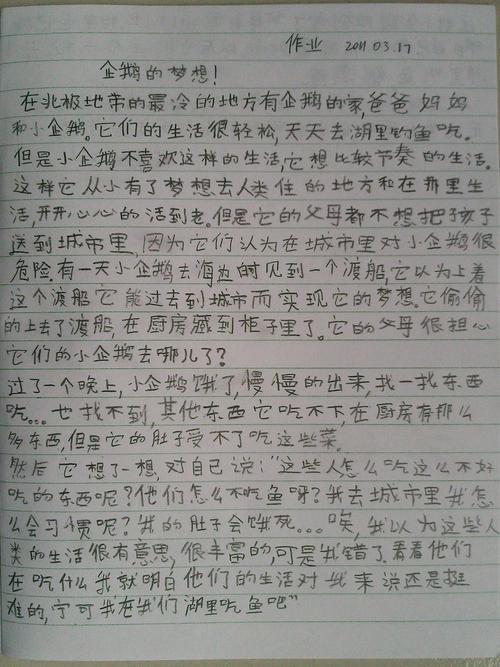 作业 2011 03.17
企鹅的梦想！
在北极地带的最冷的地方有企鹅的家，爸爸 妈妈
和小企鹅。它们的生活很轻松，天天去湖里钓鱼吃。
但是小企鹅不喜欢这样的生活，它想比较节奏的生活。
这样它从小有了梦想去人类住的地方和在那里生
活，开开心心的活到老。但是它的父母都不想把子孩子
送到城市里，因为它们认为在城市里对小企鹅很
危险。有一天小企鹅去海边时见到一个渡船，它以为上着
这个渡船它能过去到城市而实现它的梦想。它偷偷
的上去了渡船，在厨房藏到柜子里了。它的父母很担心
它们的小企鹅去哪儿了？
过了一个晚上，小企鹅饿了，慢慢的出来，找一找东西
吃... 也找不到，其他东西它吃不下，在厨房有那么
多东西，但是它的肚子受不了吃这些菜。
然后它想了一想，对自己说：“这些人怎么吃这么不好
吃的东西呢？他们怎么不吃鱼呀？我去城市里我怎
么会习惯呢？我的肚子会饿死... 唉，我以为这些人
类的生活很有意思，很丰富的，可是我错了。看着他们
在吃什么我就明白他们的生活对我来说还是挺
难的，宁可我在我们湖里吃鱼吧”